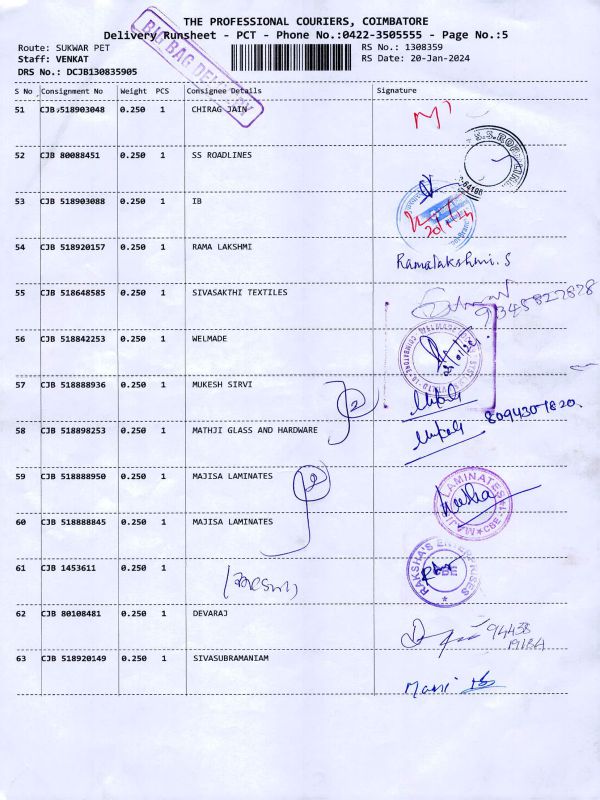 THE PROFESSIONAL COURIERS, COIMBATORE
Delivery Runsheet - PCT - Phone No.:0422-3505555 - Page No.:5
Route: SUKWAR PET
RS No.: 1308359
Staff: VENKAT
RS Date: 20-Jan-2024
DRS No.: DCJB130835905
BIG BAG DELIVERY
S No Consignment No Weight PCS Consignee Details Signature
51 CJB 518903048 0.250 1 CHIRAG JAIN
52 CJB 80088451 0.250 1 SS ROADLINES
53 CJB 518903088 0.250 1 IB
54 CJB 518920157 0.250 1 RAMA LAKSHMI Ramalakshmi.S
55 CJB 518648585 0.250 1 SIVASAKTHI TEXTILES
56 CJB 518842253 0.250 1 WELMADE
57 CJB 518888936 0.250 1 MUKESH SIRVI 2
58 CJB 518898253 0.250 1 MATHJI GLASS AND HARDWARE 8094307820
59 CJB 518888950 0.250 1 MAJISA LAMINATES 2
60 CJB 518888845 0.250 1 MAJISA LAMINATES
61 CJB 1453611 0.250 1 RAKSHA'S ENTERPRISES CBE
62 CJB 80108481 0.250 1 DEVARAJ 94438
63 CJB 518920149 0.250 1 SIVASUBRAMANIAM Mani